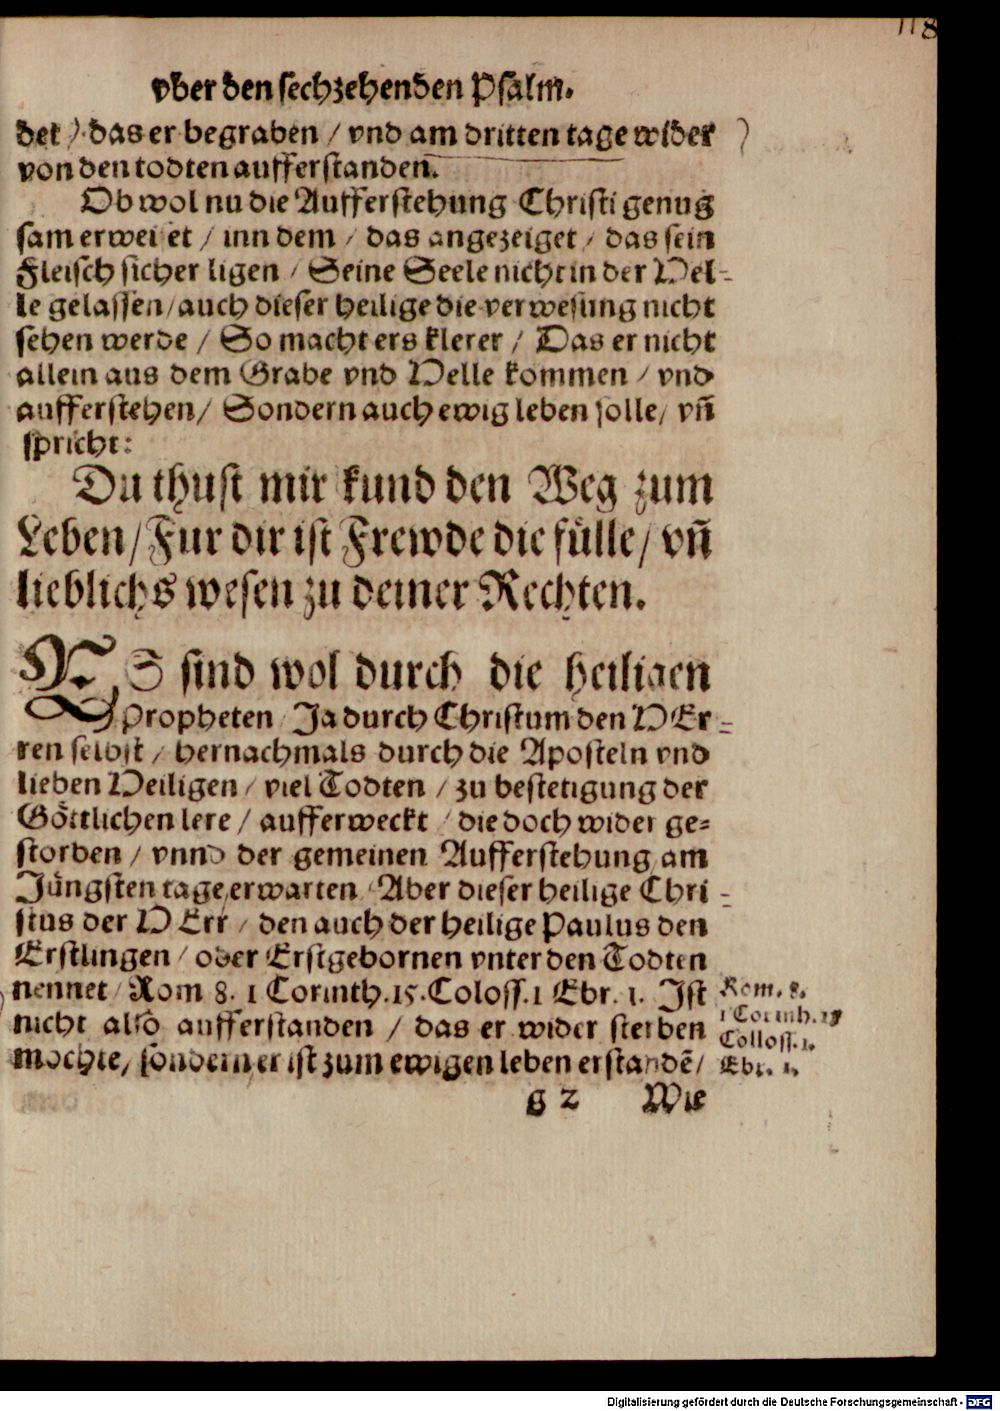 118
vber den sechzehenden Psalm.
det / das er begraben / vnd am dritten tage wider
von den todten aufferstanden.
Ob wol nu die Aufferstehung Christi genug
sam erwei et / inn dem / das angezeiget / das sein
Fleisch sicher ligen / Seine Seele nicht in der Hel-
le gelassen / auch dieser heilige die verwesung nicht
sehen werde / So macht ers klerer / Das er nicht
allein aus dem Grabe vnd Helle kommen / vnd
aufferstehen / Sondern auch ewig leben solle / vñ
spricht:
Du thust mir kund den Weg zum
Leben / Fur dir ist Frewde die fülle / vñ
lieblichs wesen zu deiner Rechten.
ES sind wol durch die heiligen
Propheten / Ja durch Christum den HEr-
ren selbst / hernachmals durch die Aposteln vnd
lieben Heiligen / viel Todten / zu bestetigung der
Göttlichen lere / aufferweckt / die doch wider ge-
storben / vnnd der gemeinen Aufferstehung am
Jüngsten tage erwarten / Aber dieser heilige Chri-
stus der HErr / den auch der heilige Paulus den
Erstlingen / oder Erstgebornen vnter den Todten
nennet / Rom 8. 1 Corinth. 15. Coloss. 1 Ebr. 1. Ist
nicht also aufferstanden / das er wider sterben
mochte, sondern er ist zum ewigen leben erstandē /
Rom. 8.
1 Corinth. 15
Colloss. 1.
Ebr. 1.
g 2 Wie
Digitalisierung gefördert durch die Deutsche Forschungsgemeinschaft - DFG